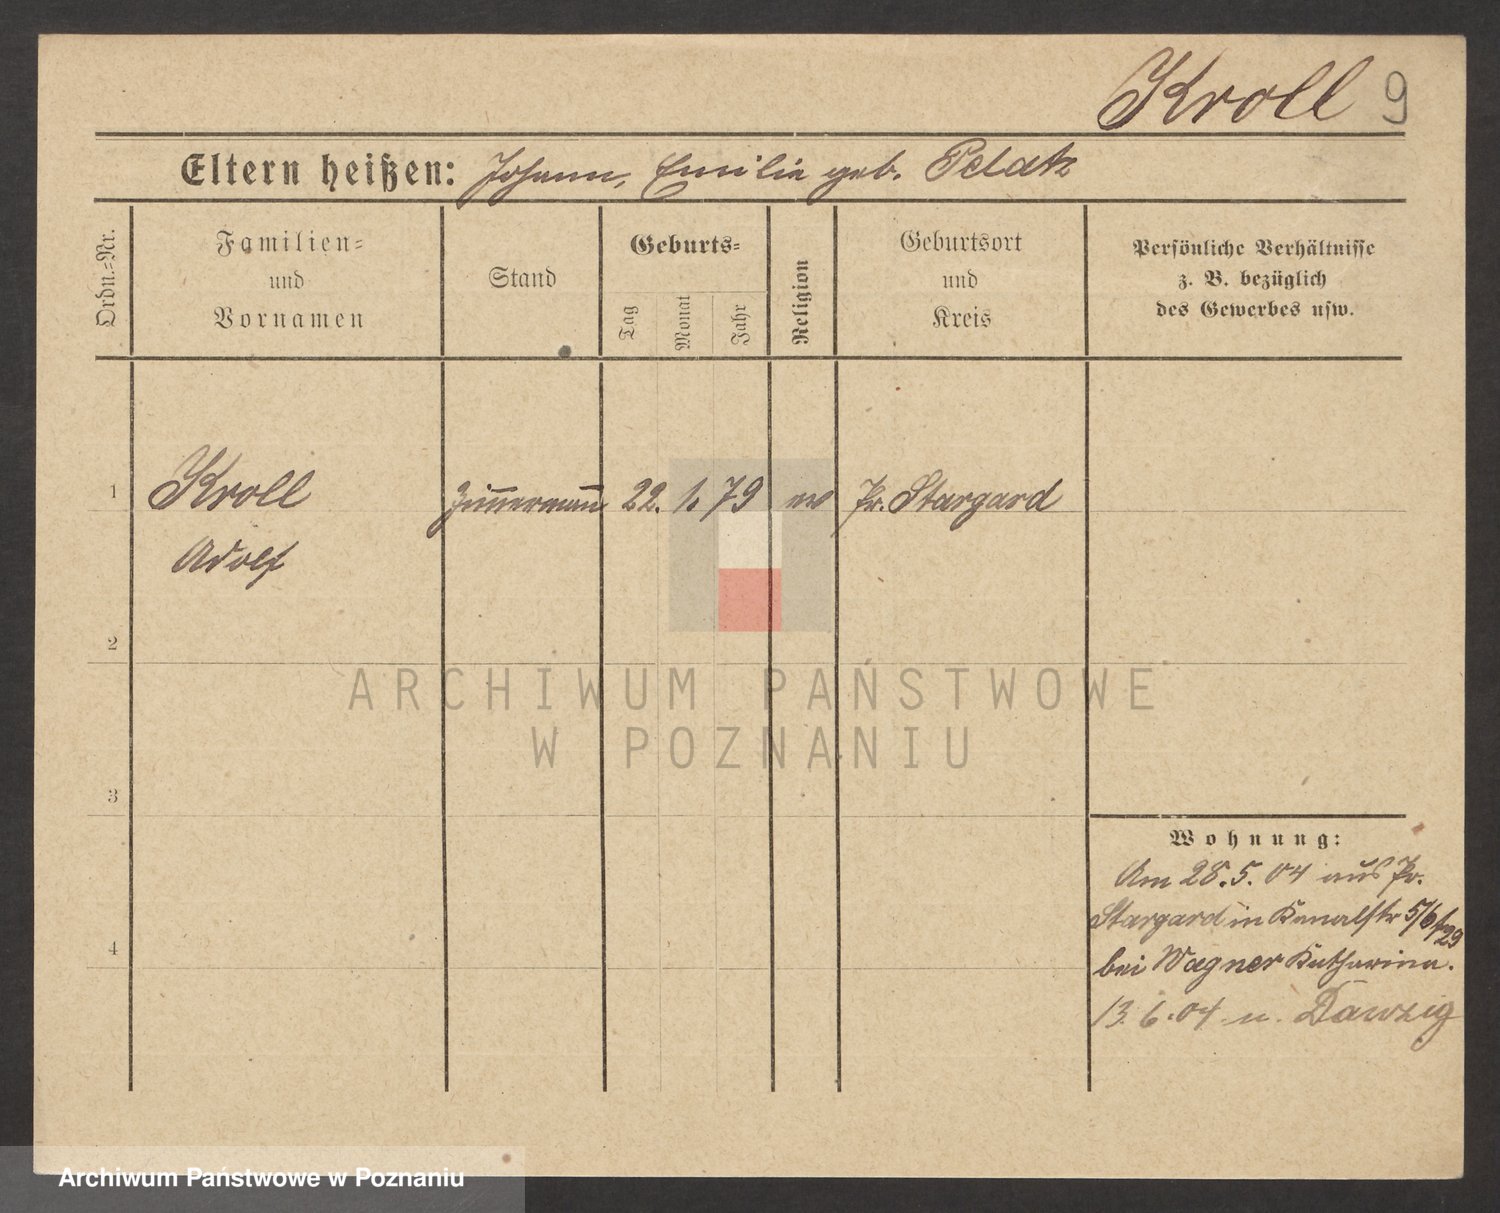 Kroll 9
Eltern heißen: Johann, Emilie geb. Pelatz
Ordn.=Nr.
Familien=
und
Vornamen
Stand
Geburts=
Tag
Monat
Jahr
Religion
Geburtsort
und
Kreis
Persönliche Verhältnisse
z. B. bezüglich
des Gewerbes usw.
1 Kroll Zim̅erman̅ 22. 1. 79 ev Pr. Stargard
Adolf
2
3
4
Wohnung:
Am 28.5.04 aus Pr.
Stargard in Kanalstr 5/6
bei Wagner Katharina.
13.6.04 n. Danzig
ARCHIWUM PAŃSTWOWE
W POZNANIU
Archiwum Państwowe w Poznaniu